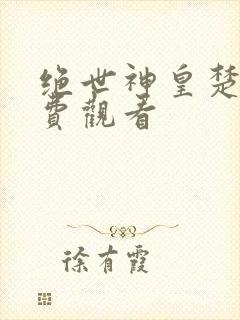 绝世神皇楚
费观看
徐有霞